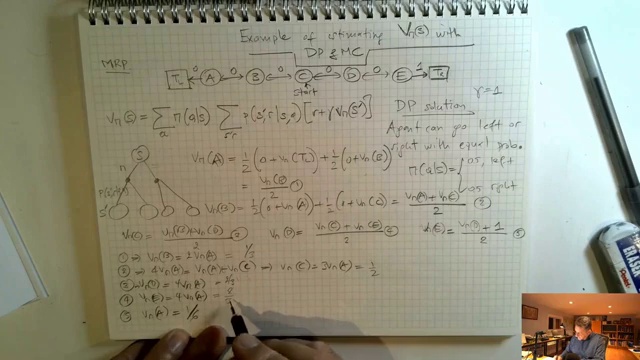 Example of estimating Vπ(s) with
DP & MC
MRP
TL 0 A 0 B 0 C 0 D 0 E 1 TR
start
γ=1
Vπ(s) = Σa π(a|s) Σs',r p(s',r|s,a) [r+γ Vπ(s')]
DP solution
Agent can go left or
right with equal prob.
π(a|s) = { 0.5, left
0.5 right
S
π
s'
Vπ(A) = 1/2 (0+Vπ(TL)) + 1/2 (0+Vπ(B))
= Vπ(B)/2 ①
Vπ(B) = 1/2 (0+Vπ(A)) + 1/2 (0+Vπ(C)) = Vπ(A)+Vπ(C)/2 ②
Vπ(C) = Vπ(B)+Vπ(D)/2 ③ Vπ(D) = Vπ(C)+Vπ(E)/2 ④ Vπ(E) = Vπ(D)+1/2 ⑤
① ⇒ Vπ(B) = 2Vπ(A) = 1/3
② ⇒ 4Vπ(A) = Vπ(A)+Vπ(C) ⇒ Vπ(C) = 3Vπ(A) = 1/2
③ Vπ(D) = 4Vπ(A) = 2/3
④
⑤ Vπ(A) =